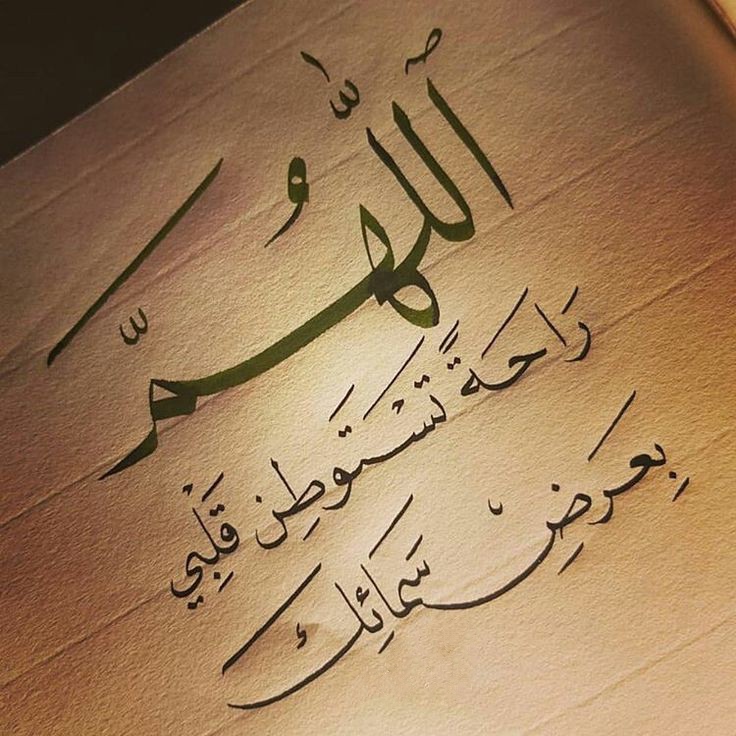 اَللّٰهُمَّ
رَاحَةً تَسْتَوطِن قَلْبِي
بِعَرضِ سَمَائِك